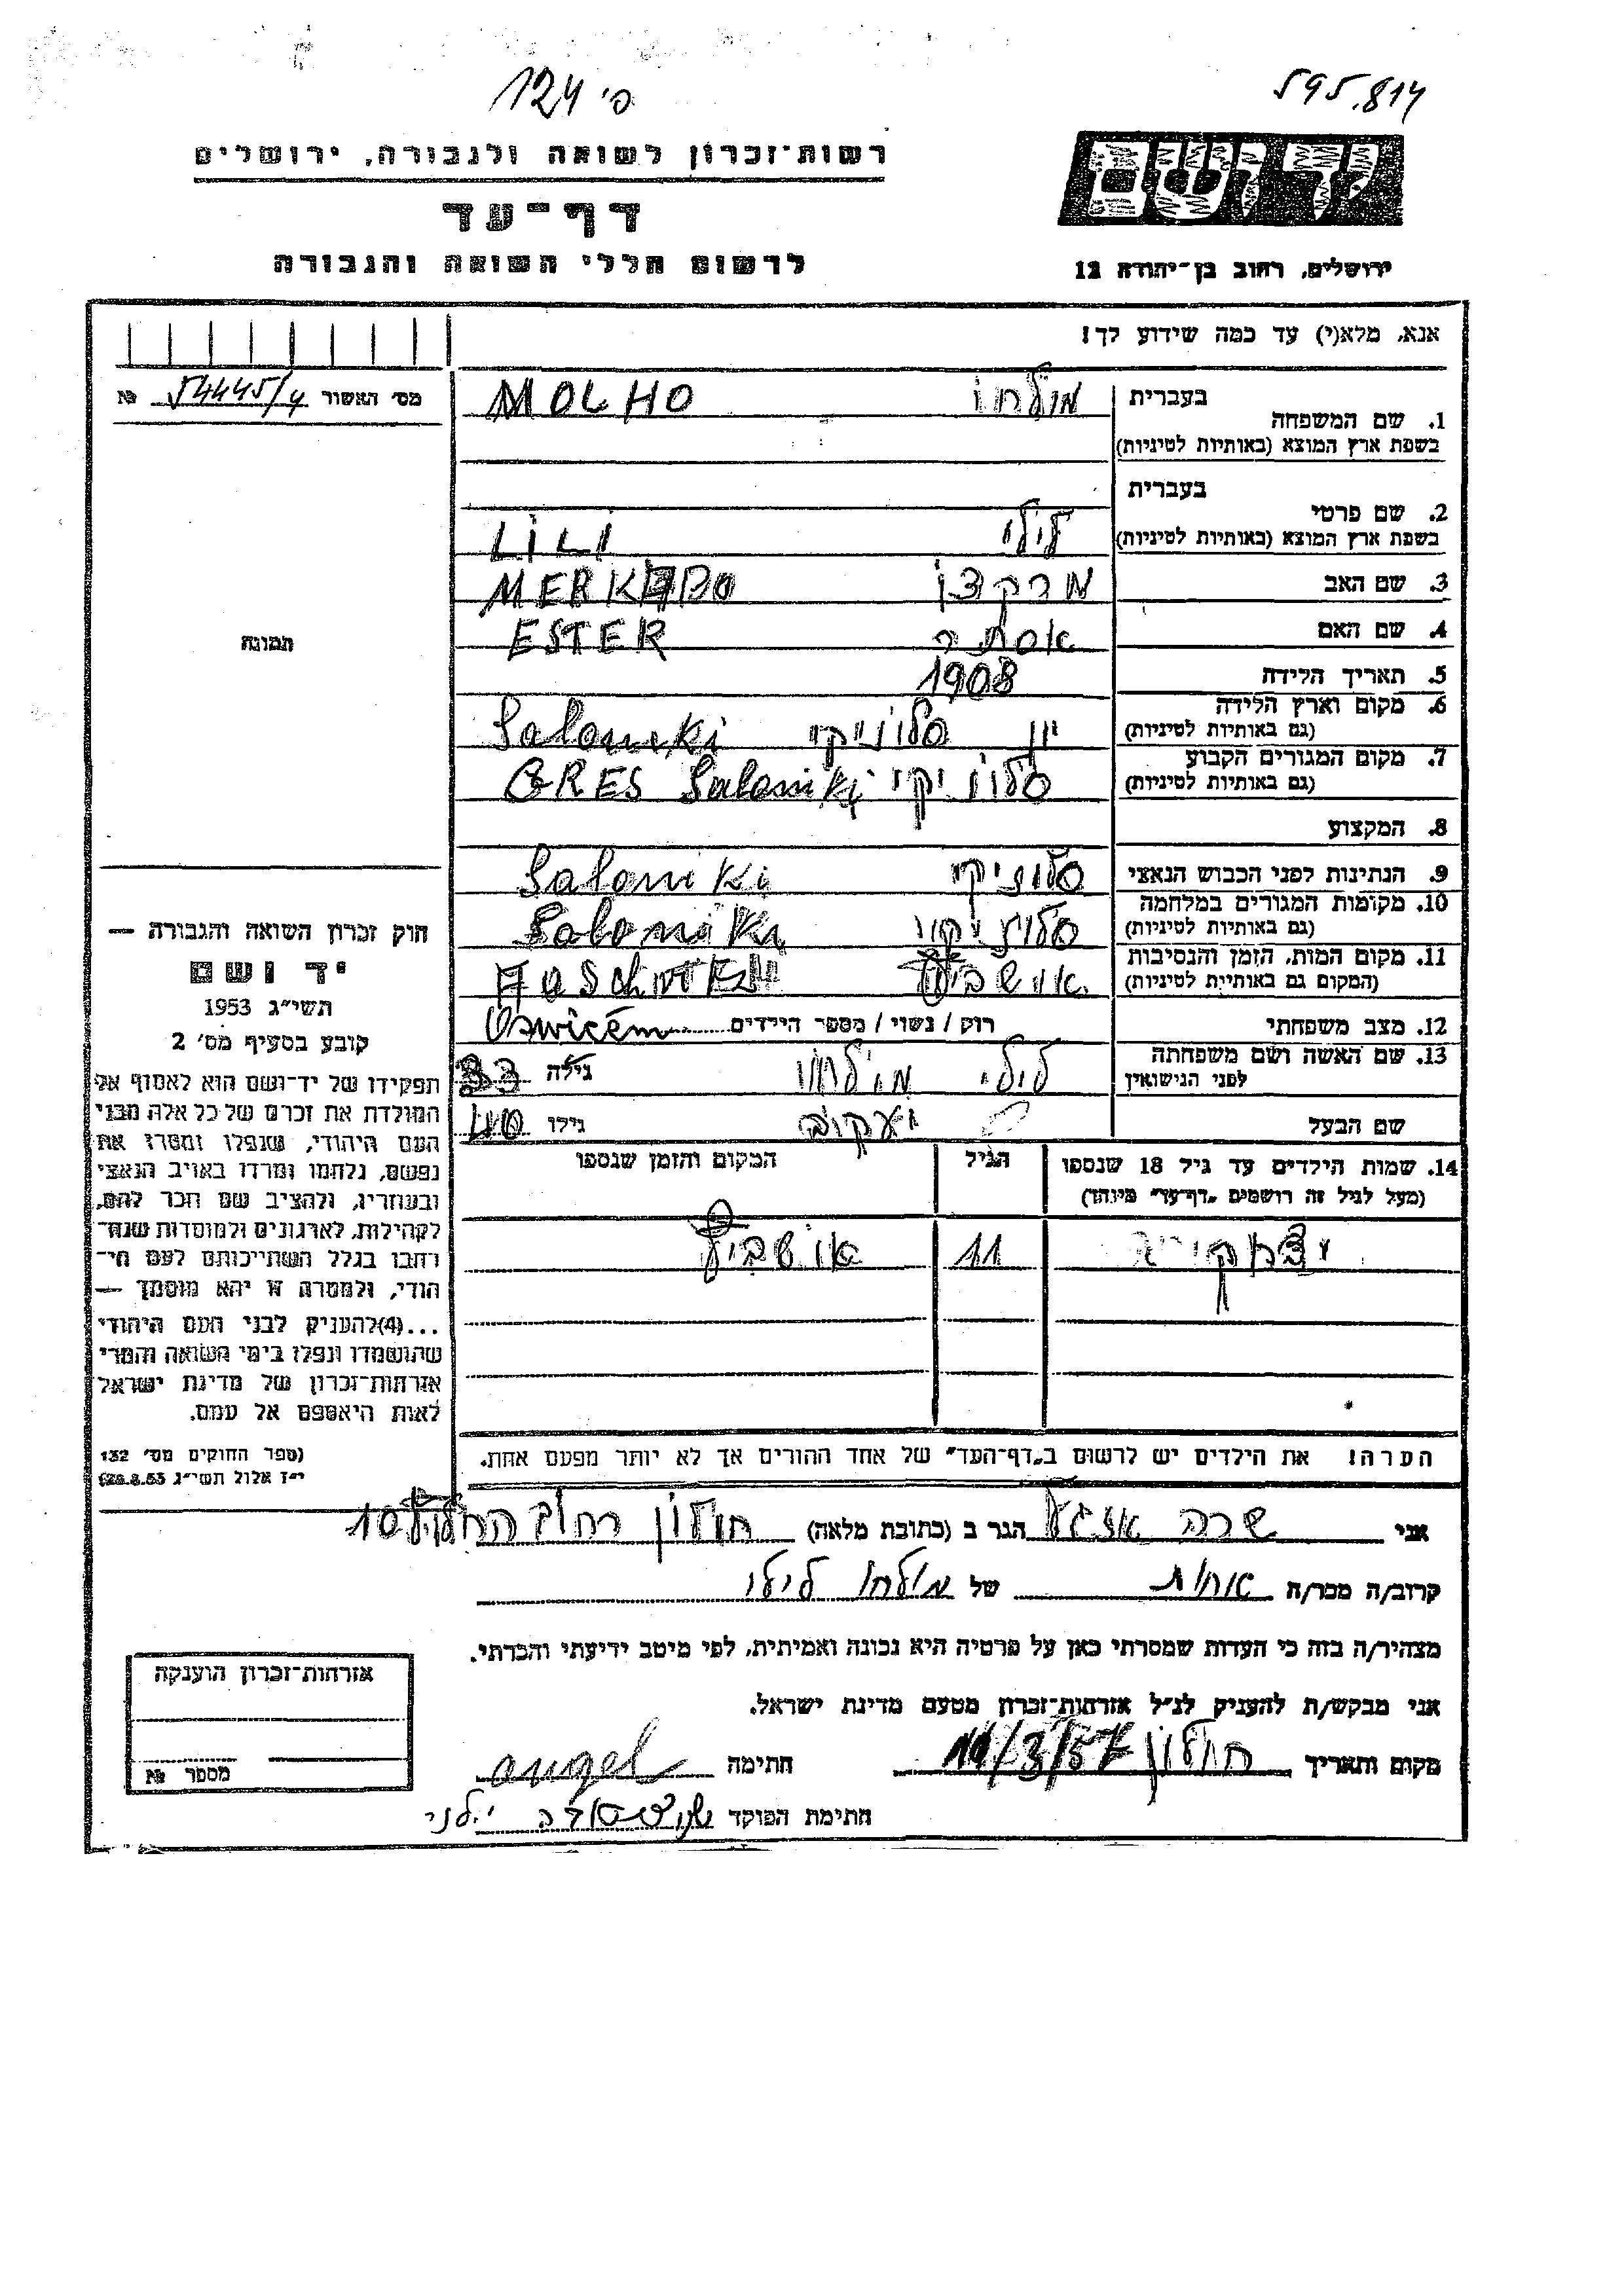 595.814
124 פ'
רשות־זכרון לשואה ולגבורה, ירושלים
יד ושם
דף־עד
לרשום חללי השואה והגבורה
ירושלים, רחוב בן־יהודה 12
אנא, מלא(י) עד כמה שידוע לך!
מס' האשור 54445/4 №
1. שם המשפחה
בעברית מולחו MOLHO
בשפת ארץ המוצא (באותיות לטיניות)
בעברית
2. שם פרטי
בשפת ארץ המוצא (באותיות לטיניות) לילי LILI
3. שם האב מרקדו MERKADO
4. שם האם אסתר ESTER
5. תאריך הלידה 1908
6. מקום וארץ הלידה יון סלוניקי Saloneki
(גם באותיות לטיניות)
7. מקום המגורים הקבוע סלוניקי GRES Saloniki
(גם באותיות לטיניות)
8. המקצוע
9. הנתינות לפני הכבוש הנאצי סלוניקי Saloniki
10. מקומות המגורים במלחמה סלוניקי Saloniki
(גם באותיות לטיניות)
11. מקום המות, הזמן והנסיבות אושביץ
(המקום גם באותיית לטיניות)
12. מצב משפחתי רוק / נשוי / מספר הילדים
13. שם האשה ושם משפחתה לילי מולחו גילה 33
לפני הנישואין
שם הבעל יעקוב גילו 40
14. שמות הילדים עד גיל 18 שנספו הגיל המקום והזמן שנספו
(מעל לגיל זה רושמים „דף־עד" מיוחד)
11 אושביץ
הערה! את הילדים יש לרשום ב„דף־העד" של אחד ההורים אך לא יותר מפעם אחת.
תמונה
חוק זכרון השואה והגבורה —
יד ושם
תשי"ג 1953
קובע בסעיף מס' 2
תפקידו של יד־ושם הוא לאסוף אל
המולדת את זכרם של כל אלה מבני
העם היהודי, שנפלו ומסרו את
נפשם, נלחמו ומרדו באויב הנאצי
ובעוזריו, ולהציב שם וזכר להם,
לקהילות, לארגונים ולמוסדות שנח־
רבו בגלל השתייכותם לעם הי־
הודי, ולמטרה זו יהא מוסמך —
...(4)להעניק לבני העם היהודי
שהושמדו ונפלו בימי השואה והמרי
אזרחות־זכרון של מדינת ישראל
לאות היאספם אל עמם.
(ספר החוקים מס' 132
י"ז אלול תשי"ג 28.8.53)
אני שרה הגר ב (כתובת מלאה) חולון רחוב 10
קרוב/ה מכר/ה אחות של מולחו לילי
מצהיר/ה בזה כי העדות שמסרתי כאן על פרטיה היא נכונה ואמיתית, לפי מיטב ידיעתי והכרתי.
אני מבקש/ת להעניק לנ"ל אזרחות־זכרון מטעם מדינת ישראל.
מקום ותאריך חולון 10/3/57 חתימה angel
חתימת הפוקד
אזרחות־זכרון הוענקה
מספר №